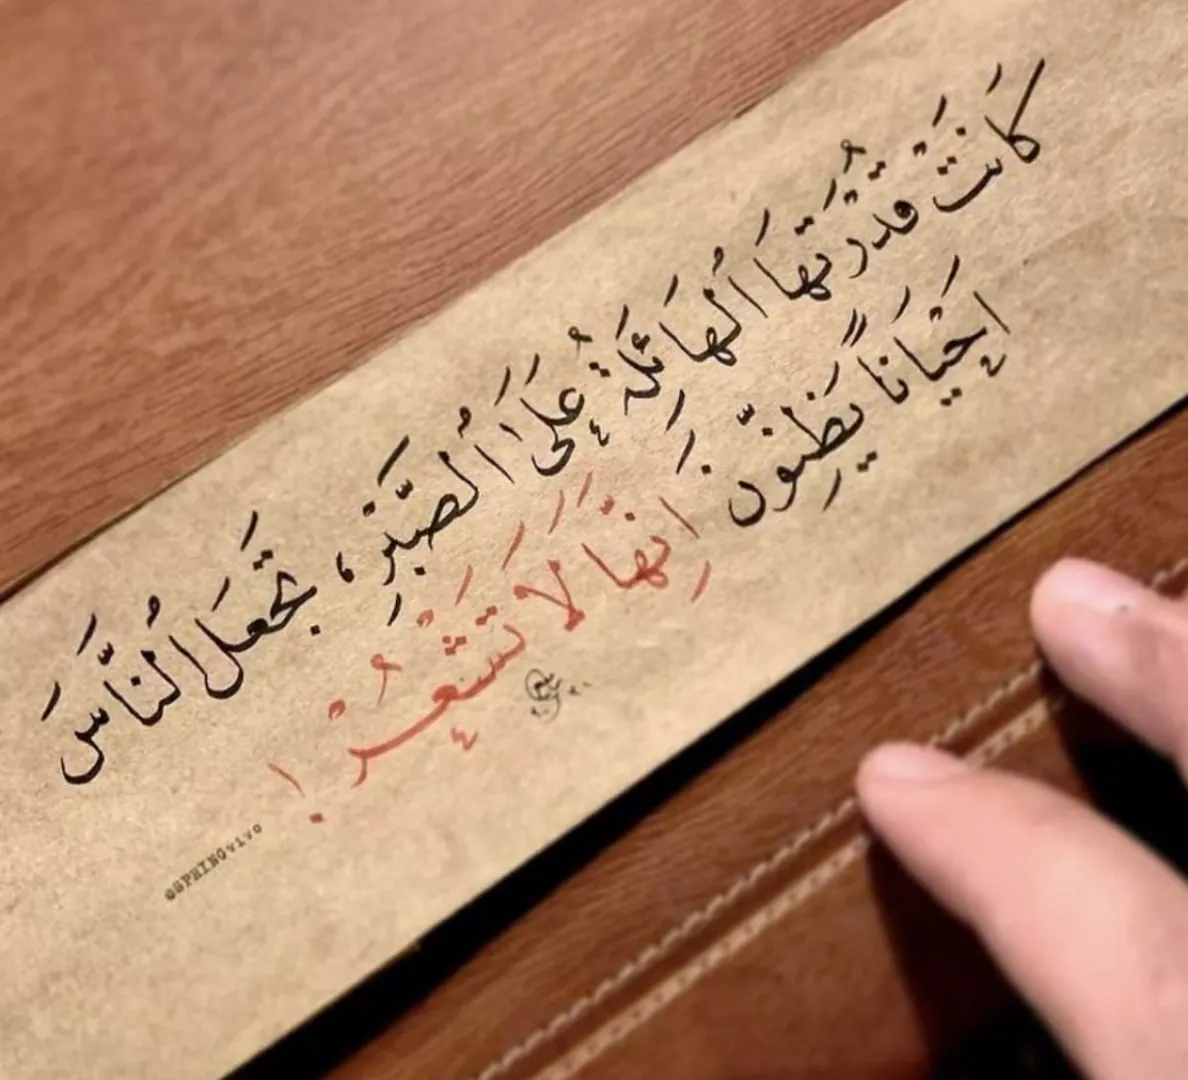 كَانَتْ قُدْرَتُهَا الْهَائِلَةُ عَلَى الصَّبْرِ، تَجْعَلُ النَّاسَ
إحْيَاناً يَظِنّونَ إِنَّهَا لَا تَشْعُرْ !
@SPHINQvivo